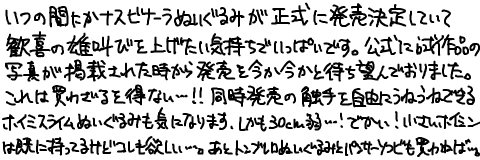 いつの間にかナスビナーラぬいぐるみが正式に発売決定していて
歓喜の雄叫びを上げたい気持ちでいっぱいです。公式に試作品の
写真が掲載された時から発売を今か今かと待ち望んでおりました。
これは買わざるを得ない…!!同時発売の触手を自由にうねうねできる
ホイミスライムぬいぐるみも気になります、しかも30cm弱…!でかい!小さいホイミン
は既に持ってるけどコレも欲しい…。あとトンブレロぬいぐるみとパンサーソックスも買わねば…。